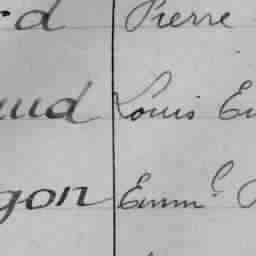 rd Pierre
aud Louis Eu
gon Emm.l